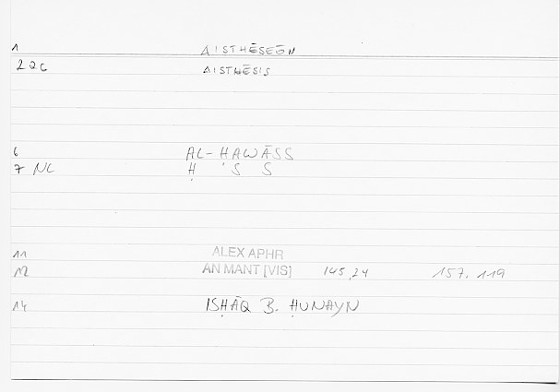 1 AISTHĒSEŌN
2 QC AISTHĒSIS
6 AL-HAWĀSS
7 NL Ḥ 'S S
11 ALEX APHR
12 AN MANT [VIS] 145,24 157.119
14 ISḤĀQ B. ḤUNAYN